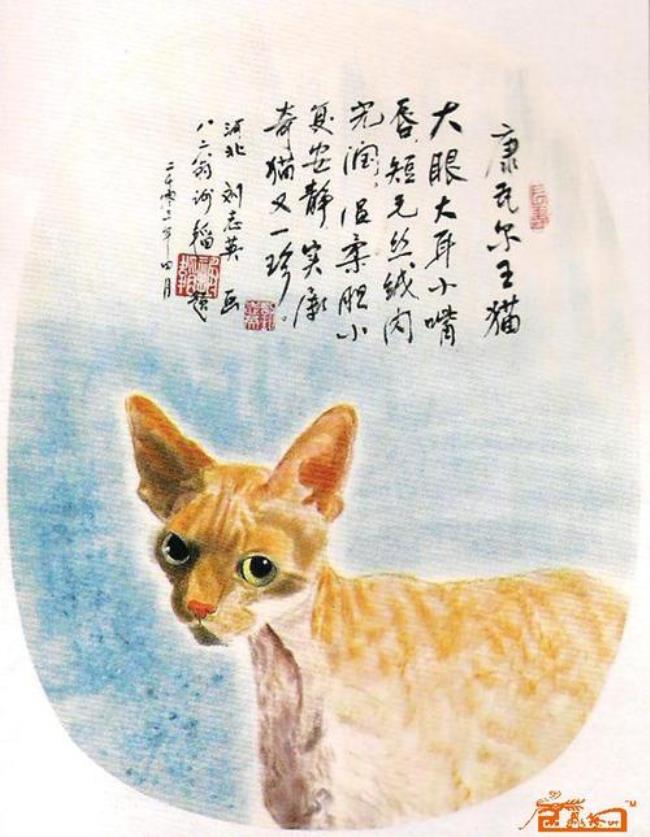 康瓦尔王猫
大眼大耳小嘴
唇,短毛丝绒闪
光润,温柔胆小
复安静,实属
奇猫又一珍。
河北 刘志英 画
八二翁 韬 题
二千零 年四月